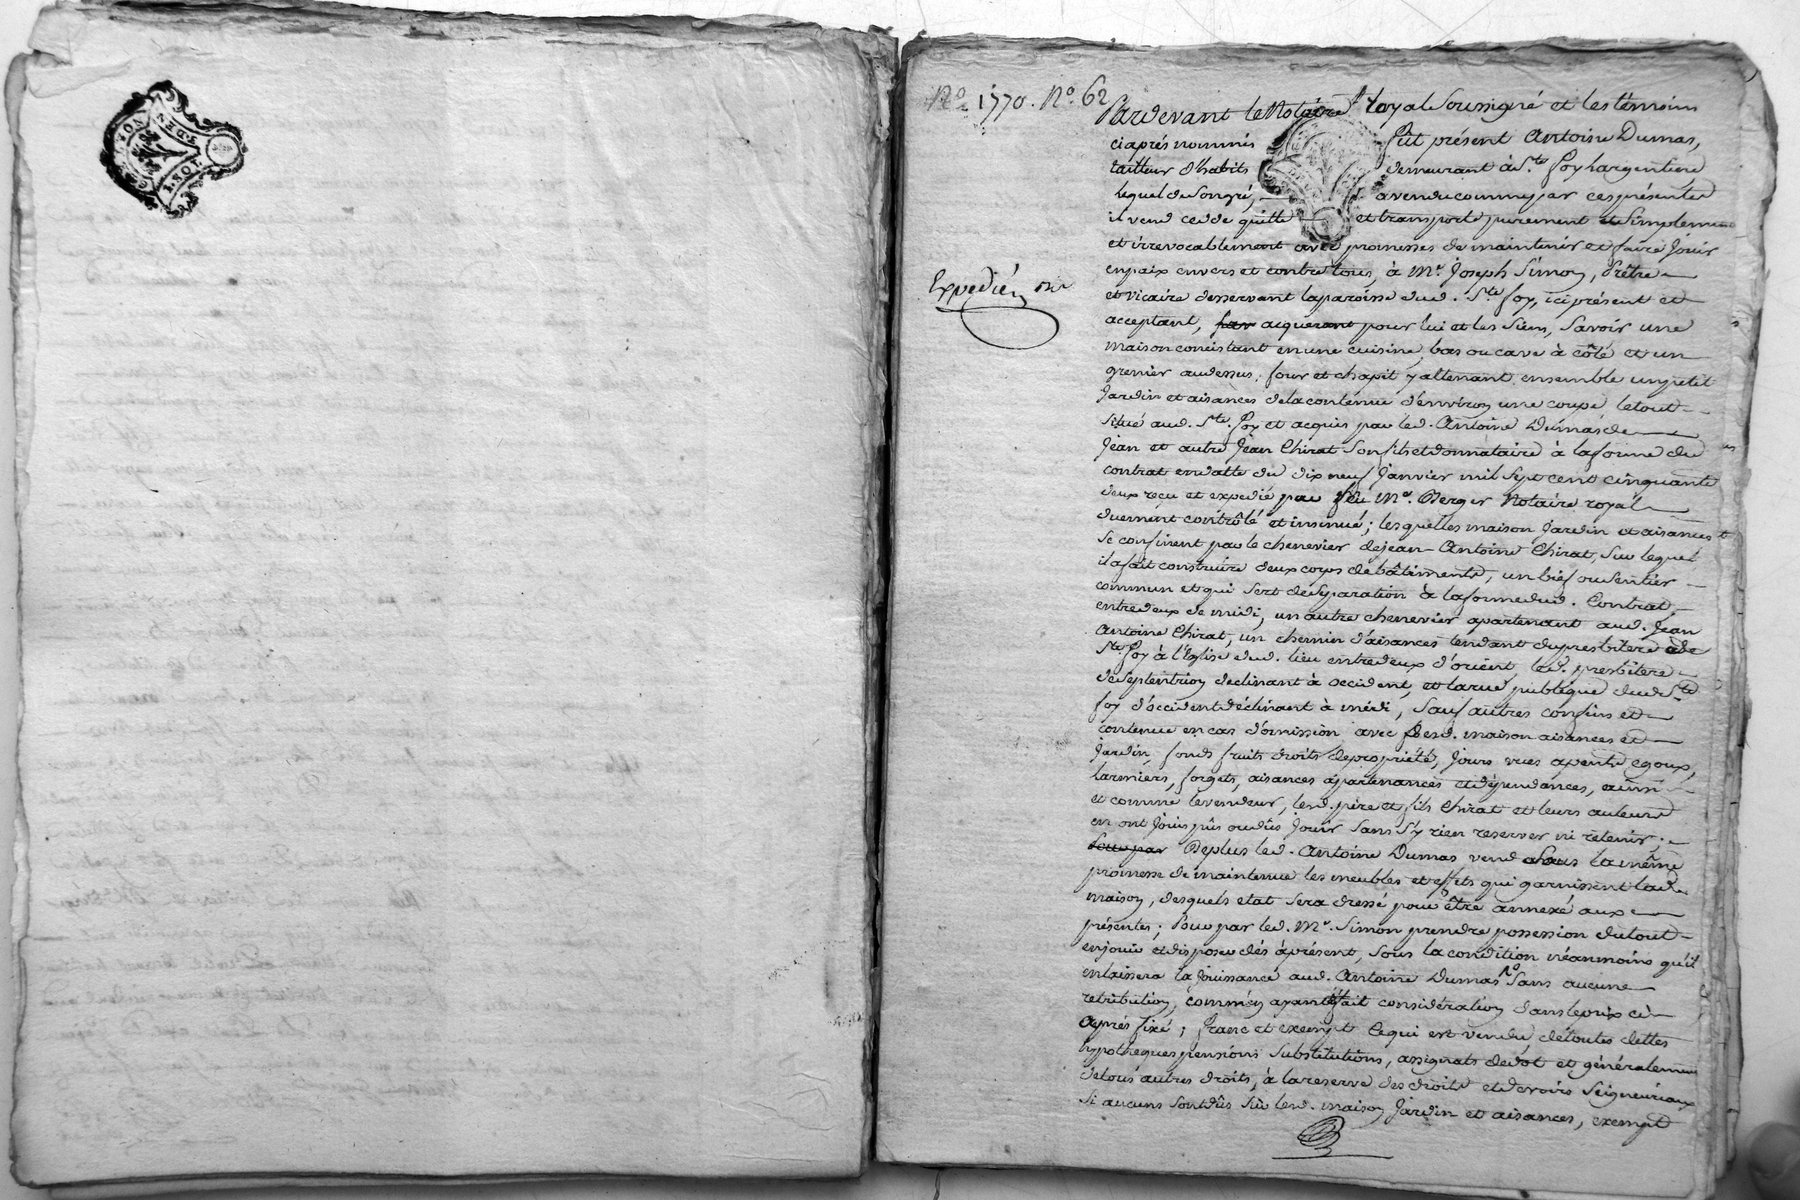 1770. No. 62
Pardevant le Notaire royal soussigné et les témoins
ci après nommés fut présent Antoine Dumas,
tailleur d'habits demeurant à Ste foy l'argentiere,
lequel de son gré, a vendu comme par ces présentes
il vend cedde quitte et transporte purement et simplement
et irrevocablement avec promesses de maintenir et faire jouir
en paix envers et contre tous, à Mre Joseph Simon, Prêtre
et vicaire desservant la paroisse dud. Ste foy, ici présent et
acceptant, acquerant pour lui et les siens, Savoir une
maison concistant en une cuisine, bas ou cave à côté et un
grenier audessus, four et chapit y attenant ensemble un petit
Jardin et aisances de la contenue d'environ une coupe, le tout
situé aud. Ste foy et acquis par led. Antoine Dumas de
Jean et autre Jean Chirat son fils et donnataire à la forme du
contrat en datte du dix neuf Janvier mil sept cent cinquante
deux reçu et expedié par feu Me. Berger Notaire royal
duement contrôlé et insinué; lesquelles maison Jardin et aisances
se confinent par le chenevier de jean Antoine Chirat, sur lequel
il a fait construire deux corps de bâtiments, un bief ou sentier
commun et qui sert de séparation à la forme dud. Contrat
entredeux de midi, un autre chenevier apartenant aud. Jean
Antoine Chirat, un chemin d'aisances tendant du presbitere de
Ste foy à l'Eglise dud. lieu entredeux d'orient, led. presbitere
de septentrion declinant à occident, et la rue publique dud. Ste
foy d'occident declinant à midi, sauf autres confins et
contenue en cas d'omission avec lesd. maison aisances et
Jardin, fonds fruits droits de propriété, jours vues apents egoux,
larmiers, forgets, aisances apartenances et dépendances, ainsi
et comme le vendeur, lesd. pere et fils Chirat et leurs auteurs
en ont joui pûs ou dûs jouir sans s'y rien reserver ni retenir;
Deplus led. Antoine Dumas vend sous la même
promesse de maintenue les meubles et effets qui garnissent lad.
maison, desquels etat sera dressé pour être annexé aux
présentes; Pour par led. Mre. Simon prendre possession du tout
en jouir et disposer dès àprésent, sous la condition néanmoins qu'il
en laissera la jouissance aud. Antoine Dumas sans aucune
retribution, comme y ayant fait considération dans le prix ci
après fixé; franc et exempt ce qui est vendu, de toutes dettes
hypotheques pensions substitutions, assignats de dot et généralement
de tous autres droits, à la reserve des droits et devoirs seigneuriaux
si aucuns sont dûs sur lesd. maison Jardin et aisances, exempt
Expedié